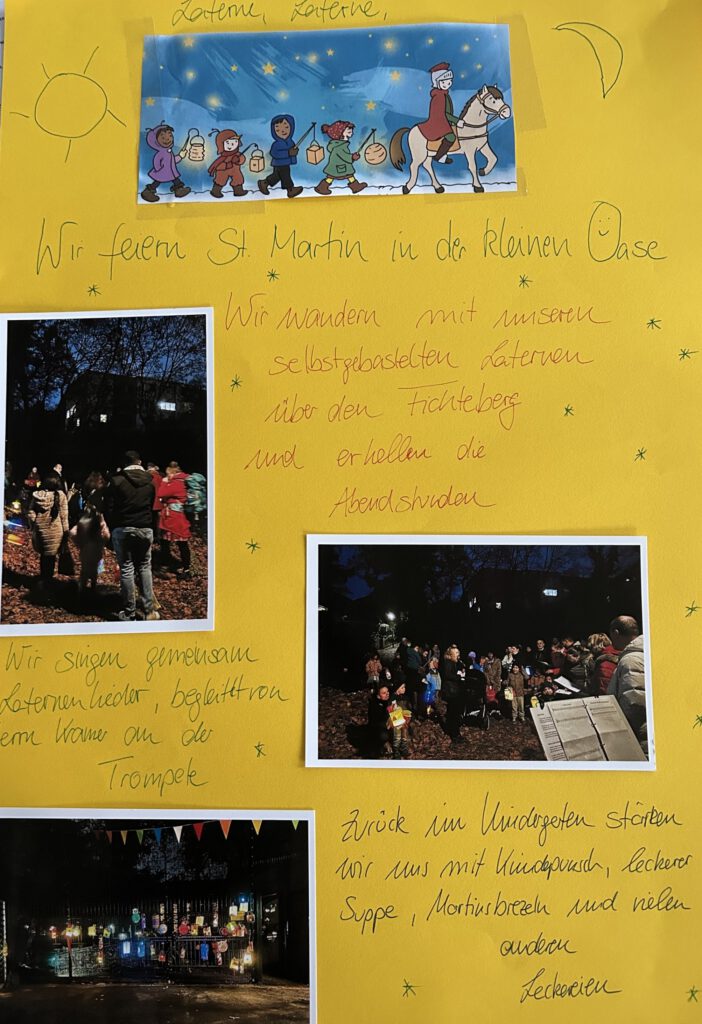 Laterne, Laterne,
Wir feiern St. Martin in der kleinen Oase
Wir wandern mit unseren
selbstgebastelten Laternen
über den Fichteberg
und erhellen die
Abendstunden
Wir singen gemeinsam
Laternenlieder, begleitet von
ern Kramer an der
Trompete
Zurück im Kindergarten stärken
wir uns mit Kinderpunsch, leckerer
Suppe, Martinsbrezeln und vielen
anderen
Leckereien